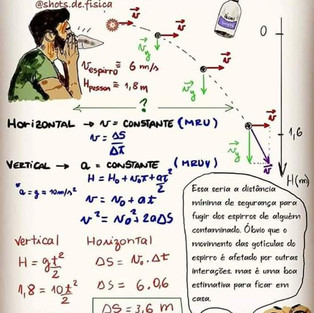 @shots.de.fisica
v espirro ≅ 6 m/s
H pessoa ≅ 1,8 m
v
v
v
v
vg
vg
vg
v
0
1,6
H(m)
?
HORIZONTAL → v = CONSTANTE (MRU)
v = ΔS/Δt
VERTICAL → a = CONSTANTE (MRUV)
* a = g = 10 m/s²
H = H₀ + v₀t + at²/2
v = v₀ + at
v² = v₀² + 2aΔS
Vertical
H = gt²/2
1,8 = 10t²/2
Horizontal
ΔS = v₀ . Δt
ΔS = 6 . 0,6
ΔS = 3,6 m
Essa seria a distância
mínima de segurança para
fugir dos espirros de alguém
contaminado. Óbvio que o
movimento das gotículas do
espirro é afetado por outras
interações, mas é uma boa
estimativa para ficar em
casa.